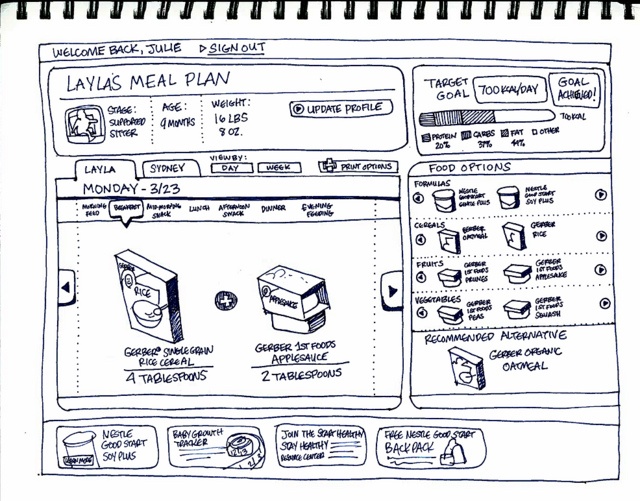 WELCOME BACK, JULIE ▷ SIGN OUT
LAYLA'S MEAL PLAN
STAGE:
SUPPORTED
SITTER
AGE:
9 MONTHS
WEIGHT:
16 LBS
8 OZ.
UPDATE PROFILE
TARGET
GOAL
700 KCAL/DAY
GOAL
ACHIEVED!
700 KCAL
PROTEIN
20%
CARBS
37%
FAT
41%
OTHER
LAYLA
SYDNEY
VIEW BY:
DAY
WEEK
PRINT OPTIONS
MONDAY - 3/23
MORNING
FEED
BREAKFAST
MID-MORNING
SNACK
LUNCH
AFTERNOON
SNACK
DINNER
EVENING
FEEDING
GERBER
RICE
APPLESAUCE
GERBER® SINGLE GRAIN
RICE CEREAL
4 TABLESPOONS
GERBER 1ST FOODS
APPLESAUCE
2 TABLESPOONS
FOOD OPTIONS
FORMULAS
NESTLE
GOOD START
PLUS
NESTLE
GOOD START
SOY PLUS
CEREALS
GERBER
OATMEAL
GERBER
RICE
FRUITS
GERBER
1ST FOODS
PRUNES
GERBER
1ST FOODS
APPLESAUCE
VEGETABLES
GERBER
1ST FOODS
PEAS
GERBER
1ST FOODS
SQUASH
RECOMMENDED ALTERNATIVE
GERBER ORGANIC
OATMEAL
NESTLE
GOOD START
SOY PLUS
LEARN MORE
BABY GROWTH
TRACKER
JOIN THE START HEALTHY
STAY HEALTHY
RESOURCE CENTER
FREE NESTLE GOOD START
BACKPACK